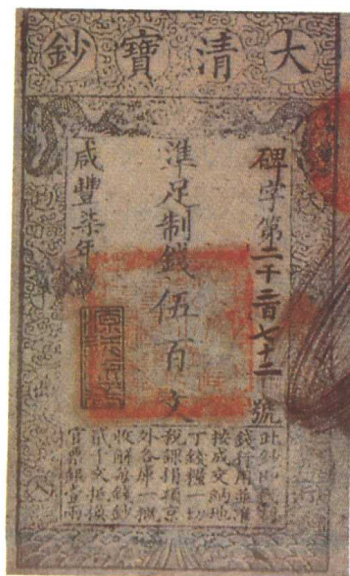 大清寶鈔
碑字第二千三百七十二號
準足制錢伍百文
咸豐柒年製
此鈔即代制
錢行用並准
按成交納地
丁錢糧一切
稅課捐項京
外各庫一概
收解每錢鈔
貳千文抵換
官票銀壹兩